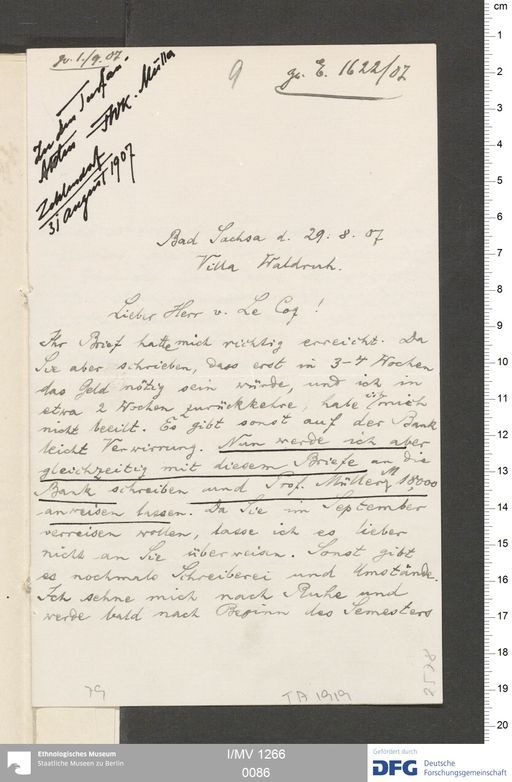 gr. 1./9. 07.
Zu den Turfan.
Akten
FWK. Müller
Zehlendorf
31 August 1907
9
gr. E. 1622/07
Bad Sachsa d. 29. 8. 07
Villa Waldruh.
Lieber Herr v. Le Coq!
Ihr Brief hatte mich richtig erreicht. Da
Sie aber schrieben, dass erst in 3-4 Wochen
das Geld nötig sein würde, und ich in
etwa 2 Wochen zurückkehre, habe ich mich
nicht beeilt. Es gibt sonst auf der Bank
leicht Verwirrung. Nun werde ich aber
gleichzeitig mit diesem Briefe an die
Bank schreiben und Prof. Müller M 18000
anweisen lassen. Da Sie im September
verreisen wollen, lasse ich es lieber
nicht an Sie überweisen. Sonst gibt
es nochmals Schreiberei und Umstände.
Ich sehne mich nach Ruhe und
werde bald nach Beginn des Semesters
79
TA 1919
2528
cm
1
2
3
4
5
6
7
8
9
10
11
12
13
14
15
16
17
18
19
20
Ethnologisches Museum
Staatliche Museen zu Berlin
I/MV 1266
0086
Gefördert durch
DFG Deutsche
Forschungsgemeinschaft